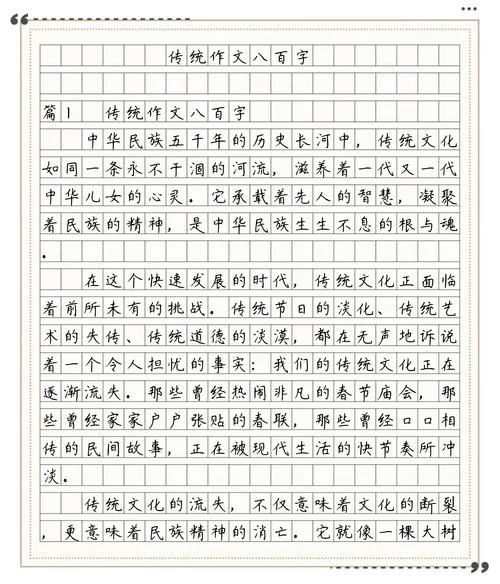 传统作文八百字
篇1 传统作文八百字
中华民族五千年的历史长河中，传统文化
如同一条永不干涸的河流，滋养着一代又一代
中华儿女的心灵．它承载着先人的智慧，凝聚
着民族的精神，是中华民族生生不息的根与魂
．
在这个快速发展的时代，传统文化正面临
着前所未有的挑战．传统节日的淡化、传统艺
术的失传、传统道德的淡漠，都在无声地诉说
着一个令人担忧的事实：我们的传统文化正在
逐渐流失．那些曾经热闹非凡的春节庙会，那
些曾经家家户户张贴的春联，那些曾经口口相
传的民间故事，正在被现代生活的快节奏所冲
淡．
传统文化的流失，不仅意味着文化的断裂
，更意味着民族精神的消亡．它就像一棵大树